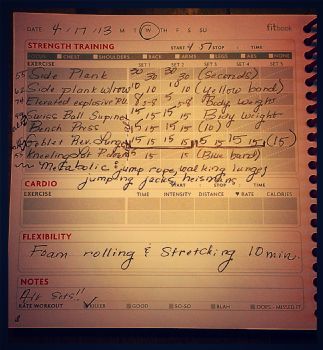 DATE 4/17/13 M T W TH F S SU fitbook
STRENGTH TRAINING START 4:51 STOP : TIME
FOCUS: CHEST SHOULDERS BACK ARMS LEGS ABS NONE
EXERCISE SET 1 SET 2 SET 3 SET 4
Side Plank 30 30 30 30 (Seconds)
Side plank w/row 10 10 10 10 (Yellow band)
Elevated explosive P.U. 8 5-8 5-8 Body weight
Swiss Ball Supine 15 15 15 Body weight
Bench Press 15 15 (10)
Goblet Rev. Lunge 15 15 15 15 15 (15)
Kneeling Lat P. down 15 15 15 (Blue band)
Metabolic jump rope, walking lunges
jumping jacks heismans
CARDIO START : STOP : TIME
EXERCISE TIME INTENSITY DISTANCE ♥ RATE CALORIES
FLEXIBILITY
Foam rolling & Stretching 10 min.
NOTES
Alt Sets!!
RATE WORKOUT ✓ KILLER GOOD SO-SO BLAH OOPS - MISSED IT